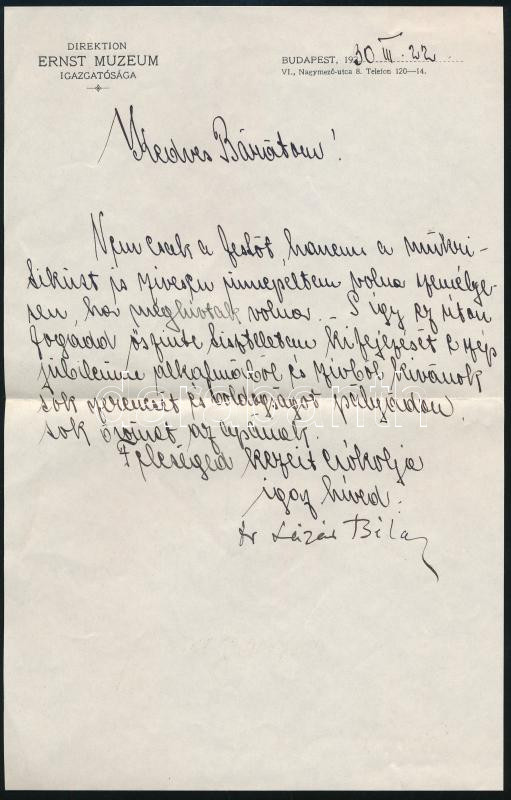 DIREKTION
ERNST MUZEUM
IGAZGATÓSÁGA
BUDAPEST, 1930 III. 22.
VI., Nagymező-utca 8. Telefon 120—14.
Kedves Barátom!
Nem csak a festőt, hanem a műkri-
tikust is szivesen ünnepeltem volna személye-
sen, ha meghívtak volna. – S így ez úton
fogadd őszinte tiszteletem kifejezését e szép
jubileum alkalmából és szivből kivánok
sok szerencsét és boldogságot pályádon,
sok örömet az apának.
Feleséged kezeit csókolja
igaz híved:
Dr Lázár Béla
darabanth